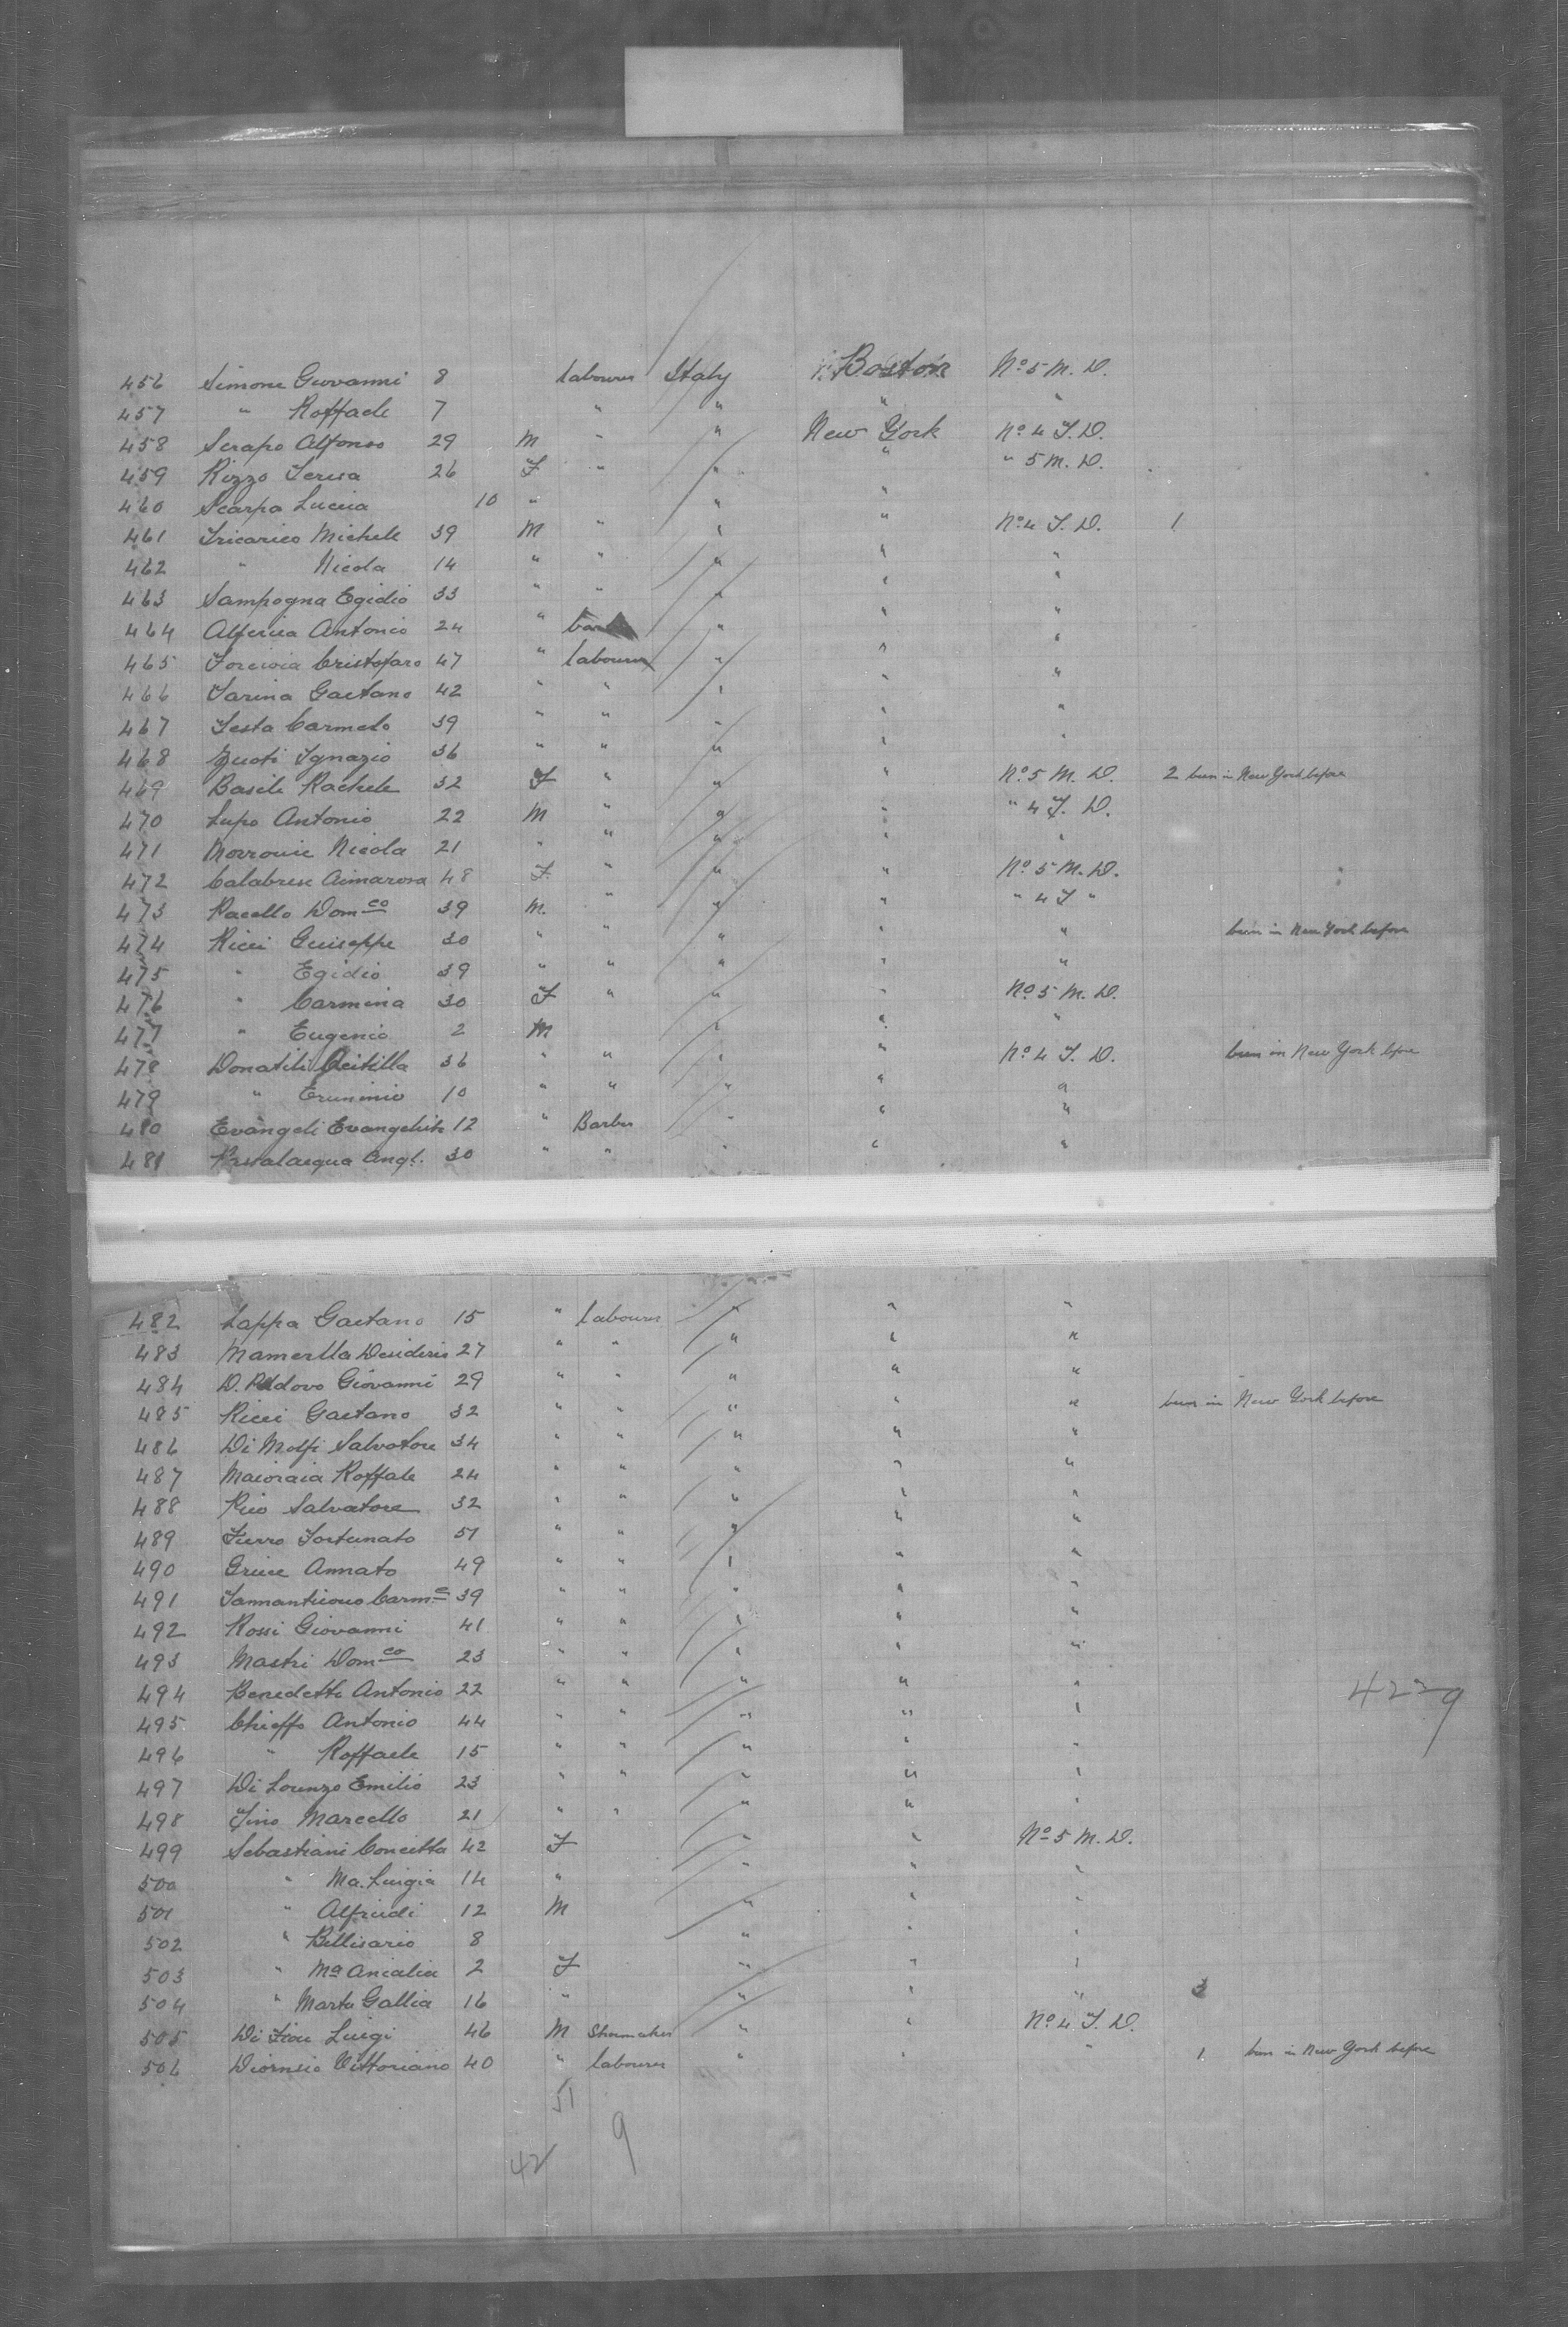 456 Simone Giovanni 8 labourer Italy Boston No 5 M. D.
457 " Raffaele 7 " " " "
458 Scrapo Alfonso 29 M " " New York No 4 J. D.
459 Rizzo Teresa 26 F " " " " 5 M. D.
460 Scarpa Lucia 10 " " "
461 Tricarico Michele 39 M " " " No 4 J. D. 1
462 " Nicola 14 " " " " "
463 Sampogna Egidio 33 " " " " "
464 Antonio 24 " " " "
465 Cristofaro 47 " labourer " " "
466 Tarina Gaetano 42 " " " " "
467 Testa Carmelo 39 " " " " "
468 Ignazio 36 " " " " "
469 Basile Rachele 32 F " " " No 5 M. D. 2 been in New York before
470 Lupo Antonio 22 M " " " " 4 J. D.
471 Nicola 21 " " " " "
472 Calabrese Aimarosa 48 F. " " " No 5 M. D.
473 Racello Domco 39 M. " " " " 4 J "
474 Ricci Guiseppe 30 " " " " " been in New York before
475 " Egidio 39 " " " " "
476 " Carmina 30 F " " " No 5 M. D.
477 " Eugenio 2 M " " "
478 Donatili 36 " " " " No 4 J. D. been in New York before
479 " Erminio 10 " " " " "
480 Evangeli 12 " Barber " " "
481 Angl. 30 " " " " "
482 Lappa Gaetano 15 " labourer " " "
483 Mamerlla Desiderio 27 " " " " "
484 Giovanni 29 " " " " "
485 Ricci Gaetano 32 " " " " " been in New York before
486 Di Molfi Salvatore 34 " " " " "
487 Maioraia Raffale 24 " " " " "
488 Rico Salvatore 32 " " " " "
489 Fortunato 51 " " " " "
490 Annato 49 " " " " "
491 Carm.e 39 " " " " "
492 Rossi Giovanni 41 " " " " "
493 Mastri Domco 23 " " " " "
494 Benedetti Antonio 22 " " " " "
4229
495 Chieffo Antonio 44 " " " " "
496 " Raffaele 15 " " " " "
497 Di Lorenzo Emilio 23 " " " " "
498 Marcello 21 " " " " "
499 Sebastiani Concetta 42 F " " No 5 M. D.
500 " Ma. Luigia 14 " " " "
501 " 12 M " " "
502 " Bellisario 8 " " "
503 " Ma 2 F " " "
504 " Marta Gallia 16 " " " " 3
505 Di Luigi 46 M Shoemaker " " No 4 J. D.
506 Vittoriano 40 " labourer " " " 1 been in New York before
51
9
42